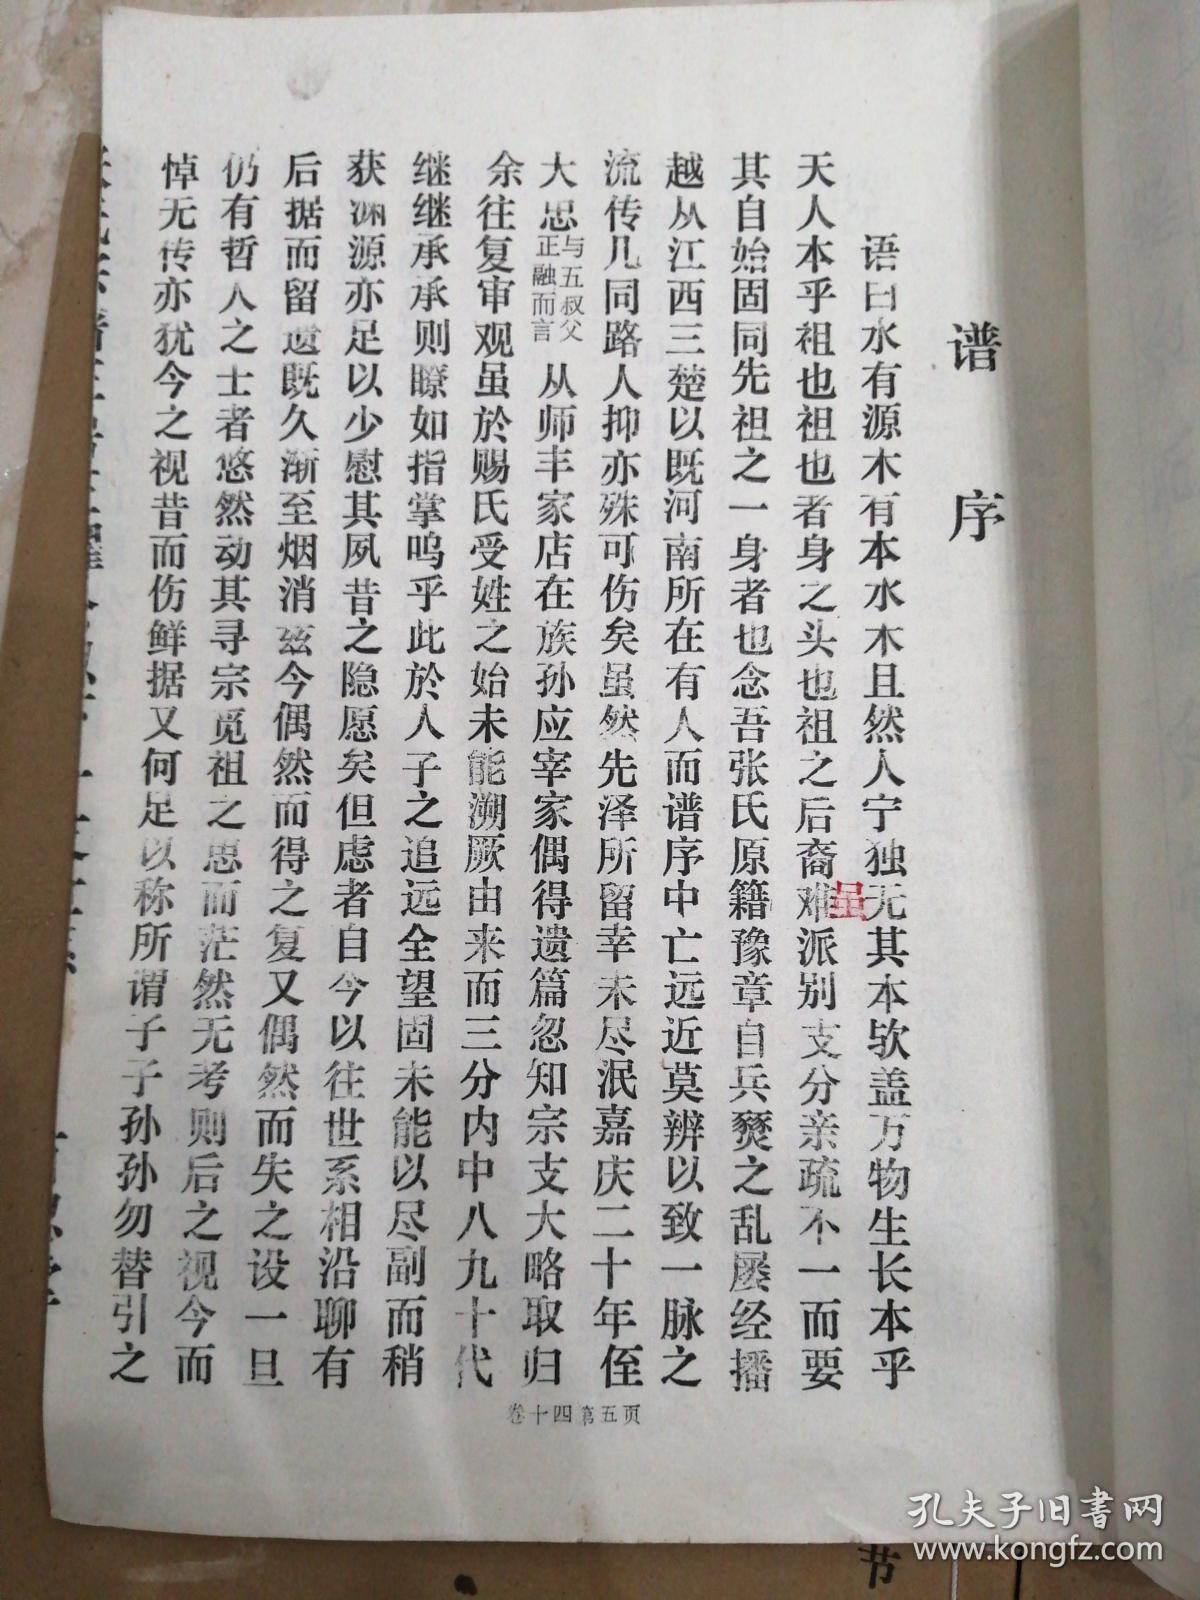 谱序
语曰水有源木有本水木且然人宁独无其本欤盖万物生长本乎
天人本乎祖也祖也者身之头也祖之后裔难派别支分亲疏不一而要
虽
其自始固同先祖之一身者也念吾张氏原籍豫章自兵燹之乱屡经播
越从江西三楚以既河南所在有人而谱序中亡远近莫辨以致一脉之
流传几同路人抑亦殊可伤矣虽然先泽所留幸未尽泯嘉庆二十年侄
大思
与五叔父
正融而言
从师丰家店在族孙应宰家偶得遗篇忽知宗支大略取归
余往复审观虽於赐氏受姓之始未能溯厥由来而三分内中八九十代
继继承承则瞭如指掌呜乎此於人子之追远全望固未能以尽副而稍
获渊源亦足以少慰其夙昔之隐愿矣但虑者自今以往世系相沿聊有
后据而留遗既久渐至烟消兹今偶然而得之复又偶然而失之设一旦
仍有哲人之士者悠然动其寻宗觅祖之思而茫然无考则后之视今而
悼无传亦犹今之视昔而伤鲜据又何足以称所谓子子孙孙勿替引之
卷十四第五页
节
孔夫子旧书网
www.kongfz.com